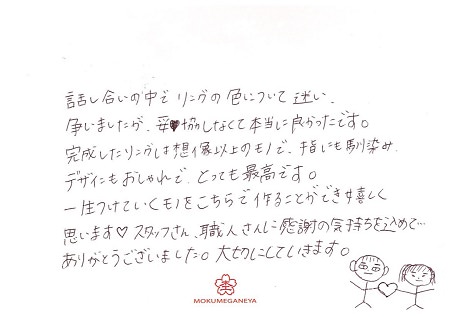 話し合いの中でリングの色について迷い、
争いましたが、妥♥協しなくて本当に良かったです。
完成したリングは想像以上のモノで、指にも馴染み、
デザインもおしゃれで、とっても最高です。
一生つけていくモノをこちらで作ることができ嬉しく
思います♡スタッフさん、職人さんに感謝の気持ちを込めて…
ありがとうございました。大切にしていきます。
MOKUMEGANEYA